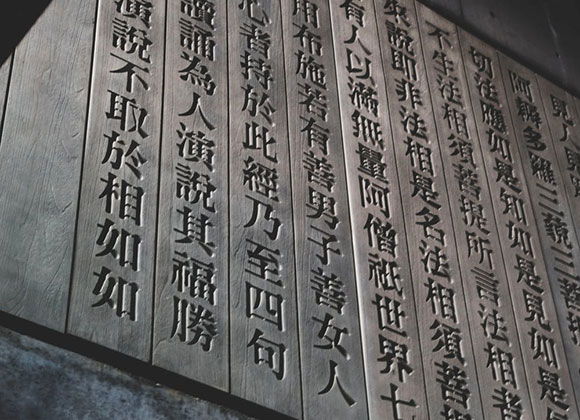 見人見
阿耨多羅三藐三菩
切法應如是知如是見如是
不生法相須菩提所言法相者
來說即非法相是名法相須菩
有人以滿無量阿僧祇世界七
用布施若有善男子善女人
心者持於此經乃至四句
讀誦為人演說其福勝
演說不取於相如如